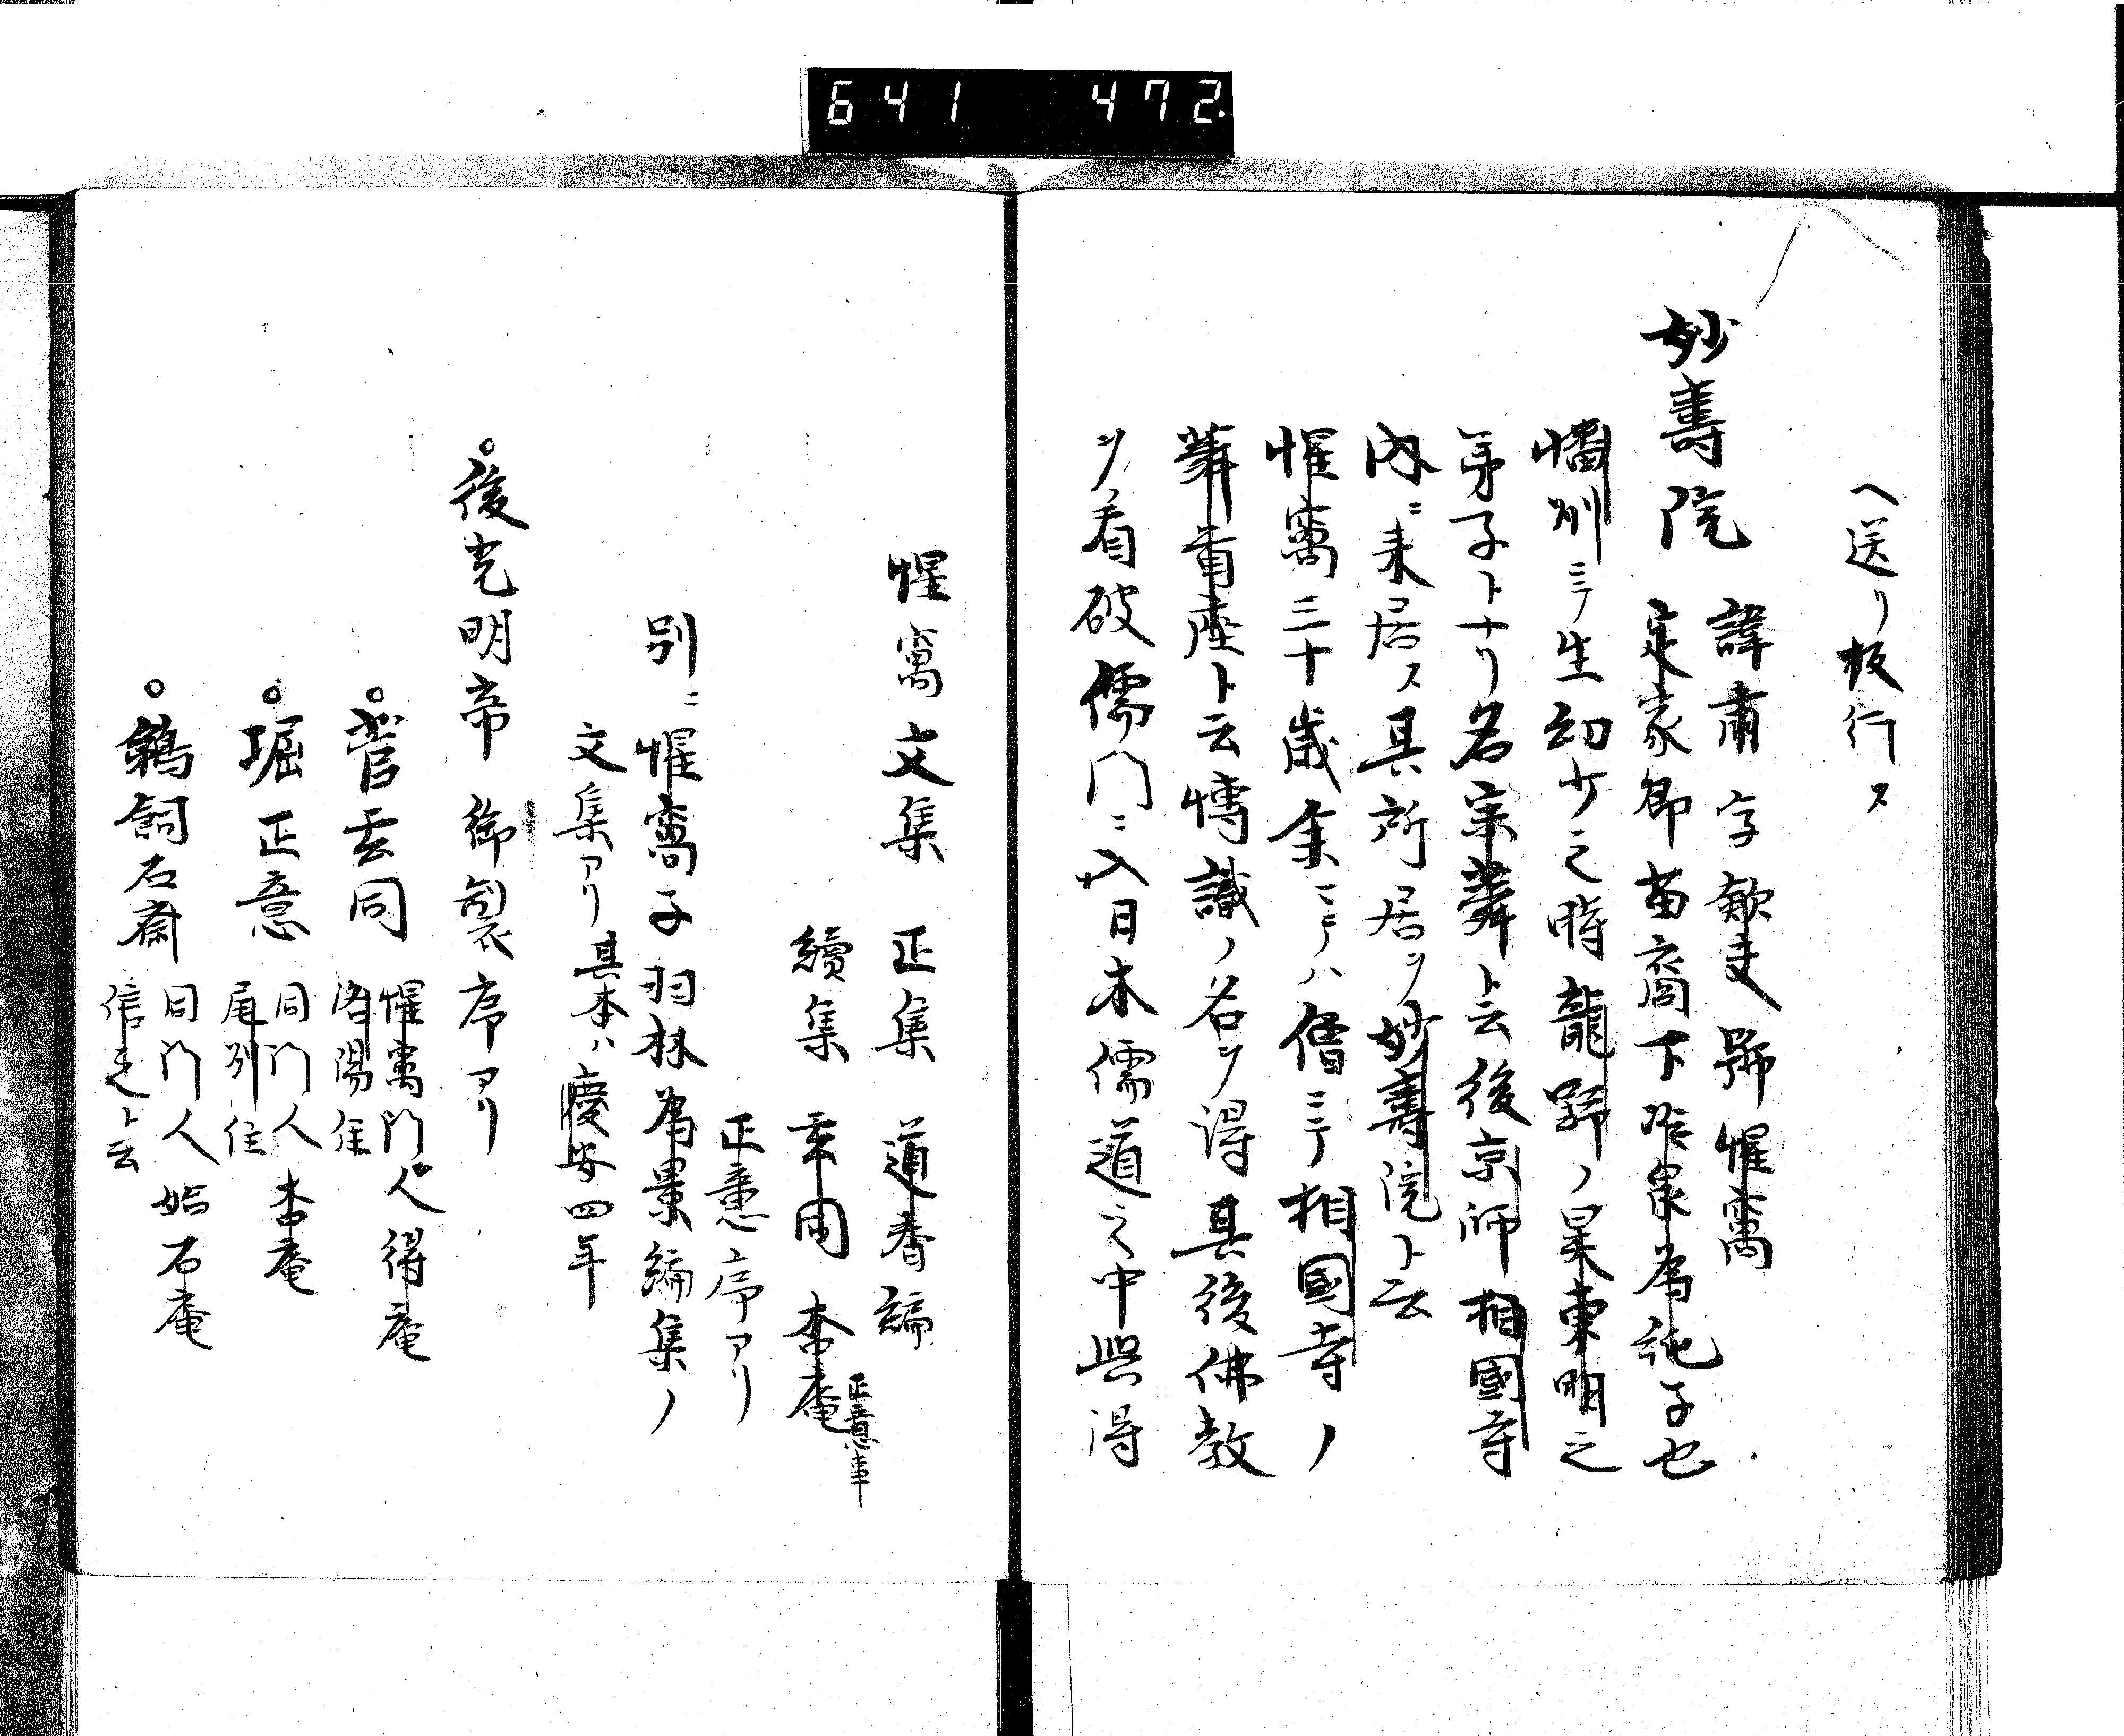 641 472.
へ送リ板行ス
妙壽院 諱肅字歛夫號惺窩
定家卿苗裔下冷泉為純子也
幡州ニテ生幼少之時龍野ノ杲東明之
弟子トナリ名宗蕣ト云後京師相國寺
内ニ来居ス其所居ヲ妙壽院ト云
惺窩三十歳余ニテハ僧ニテ相國寺ノ
蕣首座ト云博識ノ名ヲ得其後佛教
ヲ看破儒門ニ入日本儒道之中興得
惺窩文集 正集 道春編
續集 玄同 杏庵 正意事
正意序アリ
別ニ惺窩子羽林為景編集ノ
文集アリ其本ハ慶安四年
○後光明帝御製序アリ
○菅玄同 惺窩門人得庵
洛陽住
○堀正意 同門人杏庵
尾州住
○鵜飼石斎 同門人始石庵
信之ト云